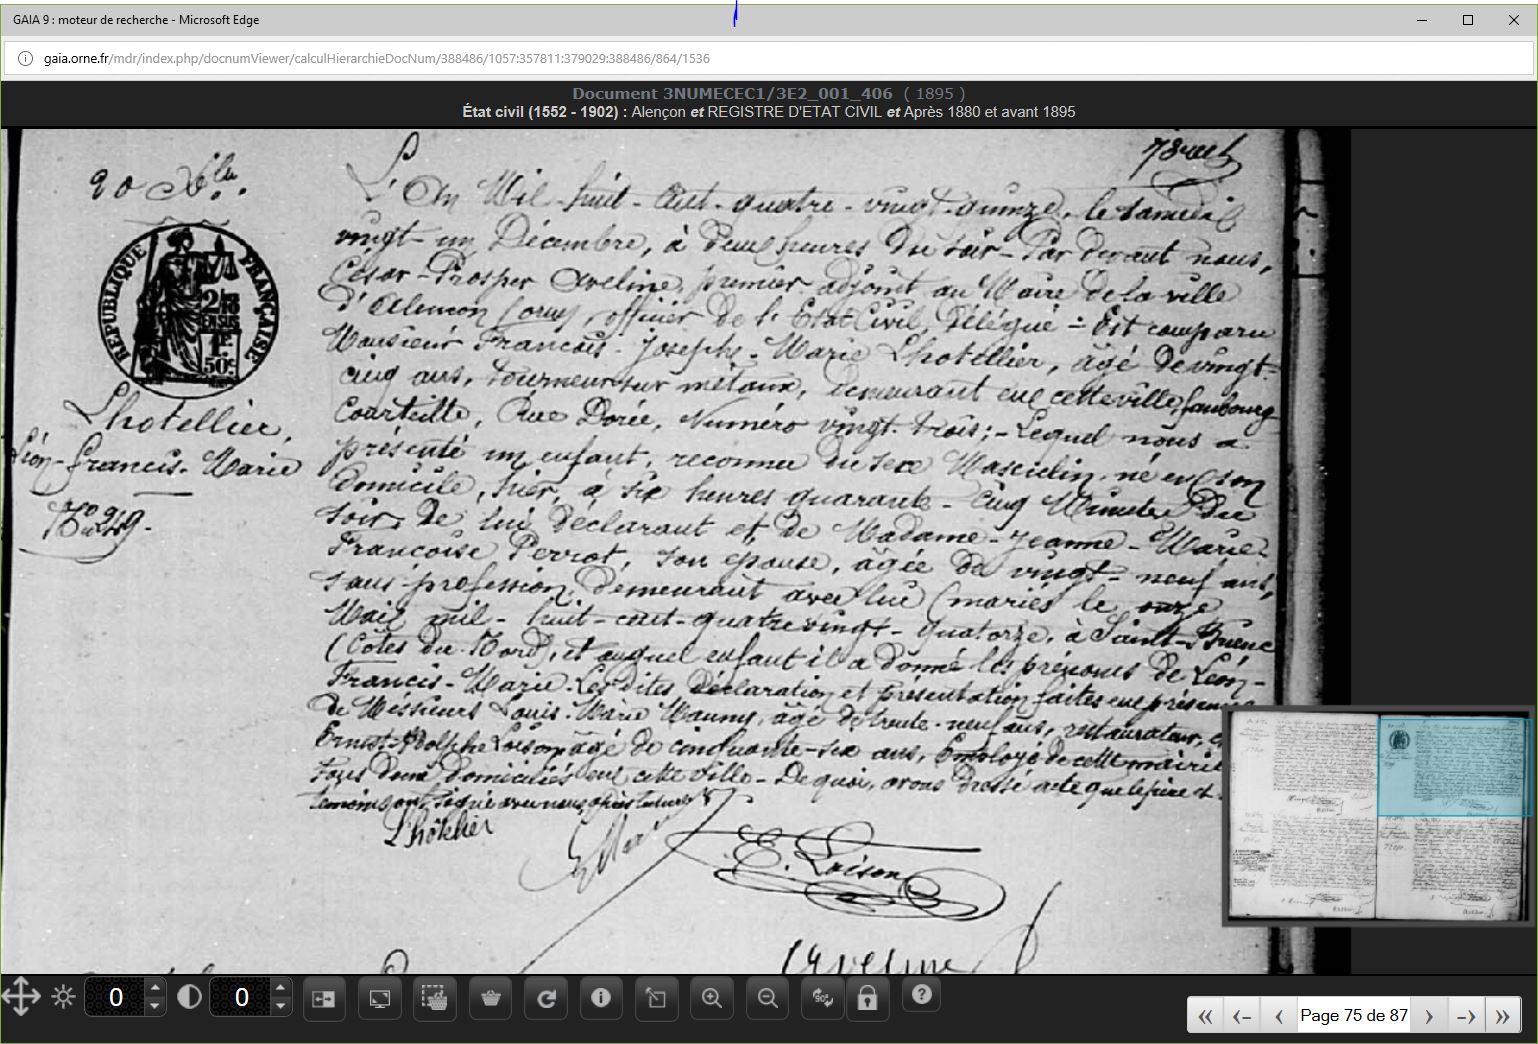 GAIA 9 : moteur de recherche - Microsoft Edge
gaia.orne.fr/mdr/index.php/docnumViewer/calculHierarchieDocNum/388486/1057:357811:379029:388486/864/1536
Document 3NUMECEC1/3E2_001_406 ( 1895 )
État civil (1552 - 1902) : Alençon et REGISTRE D'ETAT CIVIL et Après 1880 et avant 1895
20 Xbre.
REPUBLIQUE FRANÇAISE
50c
Lhotellier,
Léon-Francis-Marie
L'An Mil-huit-cent-quatre-vingt-quinze, le samedi
vingt-un Décembre, à deux heures du soir-Par devant nous,
César-Prosper Aveline, premier adjoint au Maire de la ville
d'Alençon, officier de l'Etat Civil, Délégué - Est comparu
Monsieur François-Joseph-Marie Lhotellier, âgé de vingt-
cinq ans, tourneur sur métaux, demeurant en cette ville, faubourg
Courteille, Rue Dorée, Numéro vingt-trois;-Lequel nous a
présenté un enfant, reconnu du sexe Masculin, né en son
domicile, hier, à six heures quarante-cinq Minutes du
soir, de lui déclarant et de Madame-Jeanne-Marie-
Françoise Perrot, son épouse, âgée de vingt-neuf ans,
sans profession, demeurant avec lui (mariés le onze
Mai mil-huit-cent-quatre vingt-quatorze, à Saint-Brieuc
(Côtes du Nord), et auquel enfant il a donné les prénoms de Léon-
Francis-Marie. Les dites déclaration et présentation faites en présence
de Messieurs Louis-Marie Mauny, âgé de trente-neuf ans, restaurateur, et
Ernest-Adolphe Loison âgé de cinquante-six ans, Employé de cette mairie
tous deux domiciliés en cette ville-De quoi, avons dressé acte que le père et
témoins ont signé avec nous, après lecture
L'hôtelier
E. Loison
Aveline
0
0
90°
Page 75 de 87